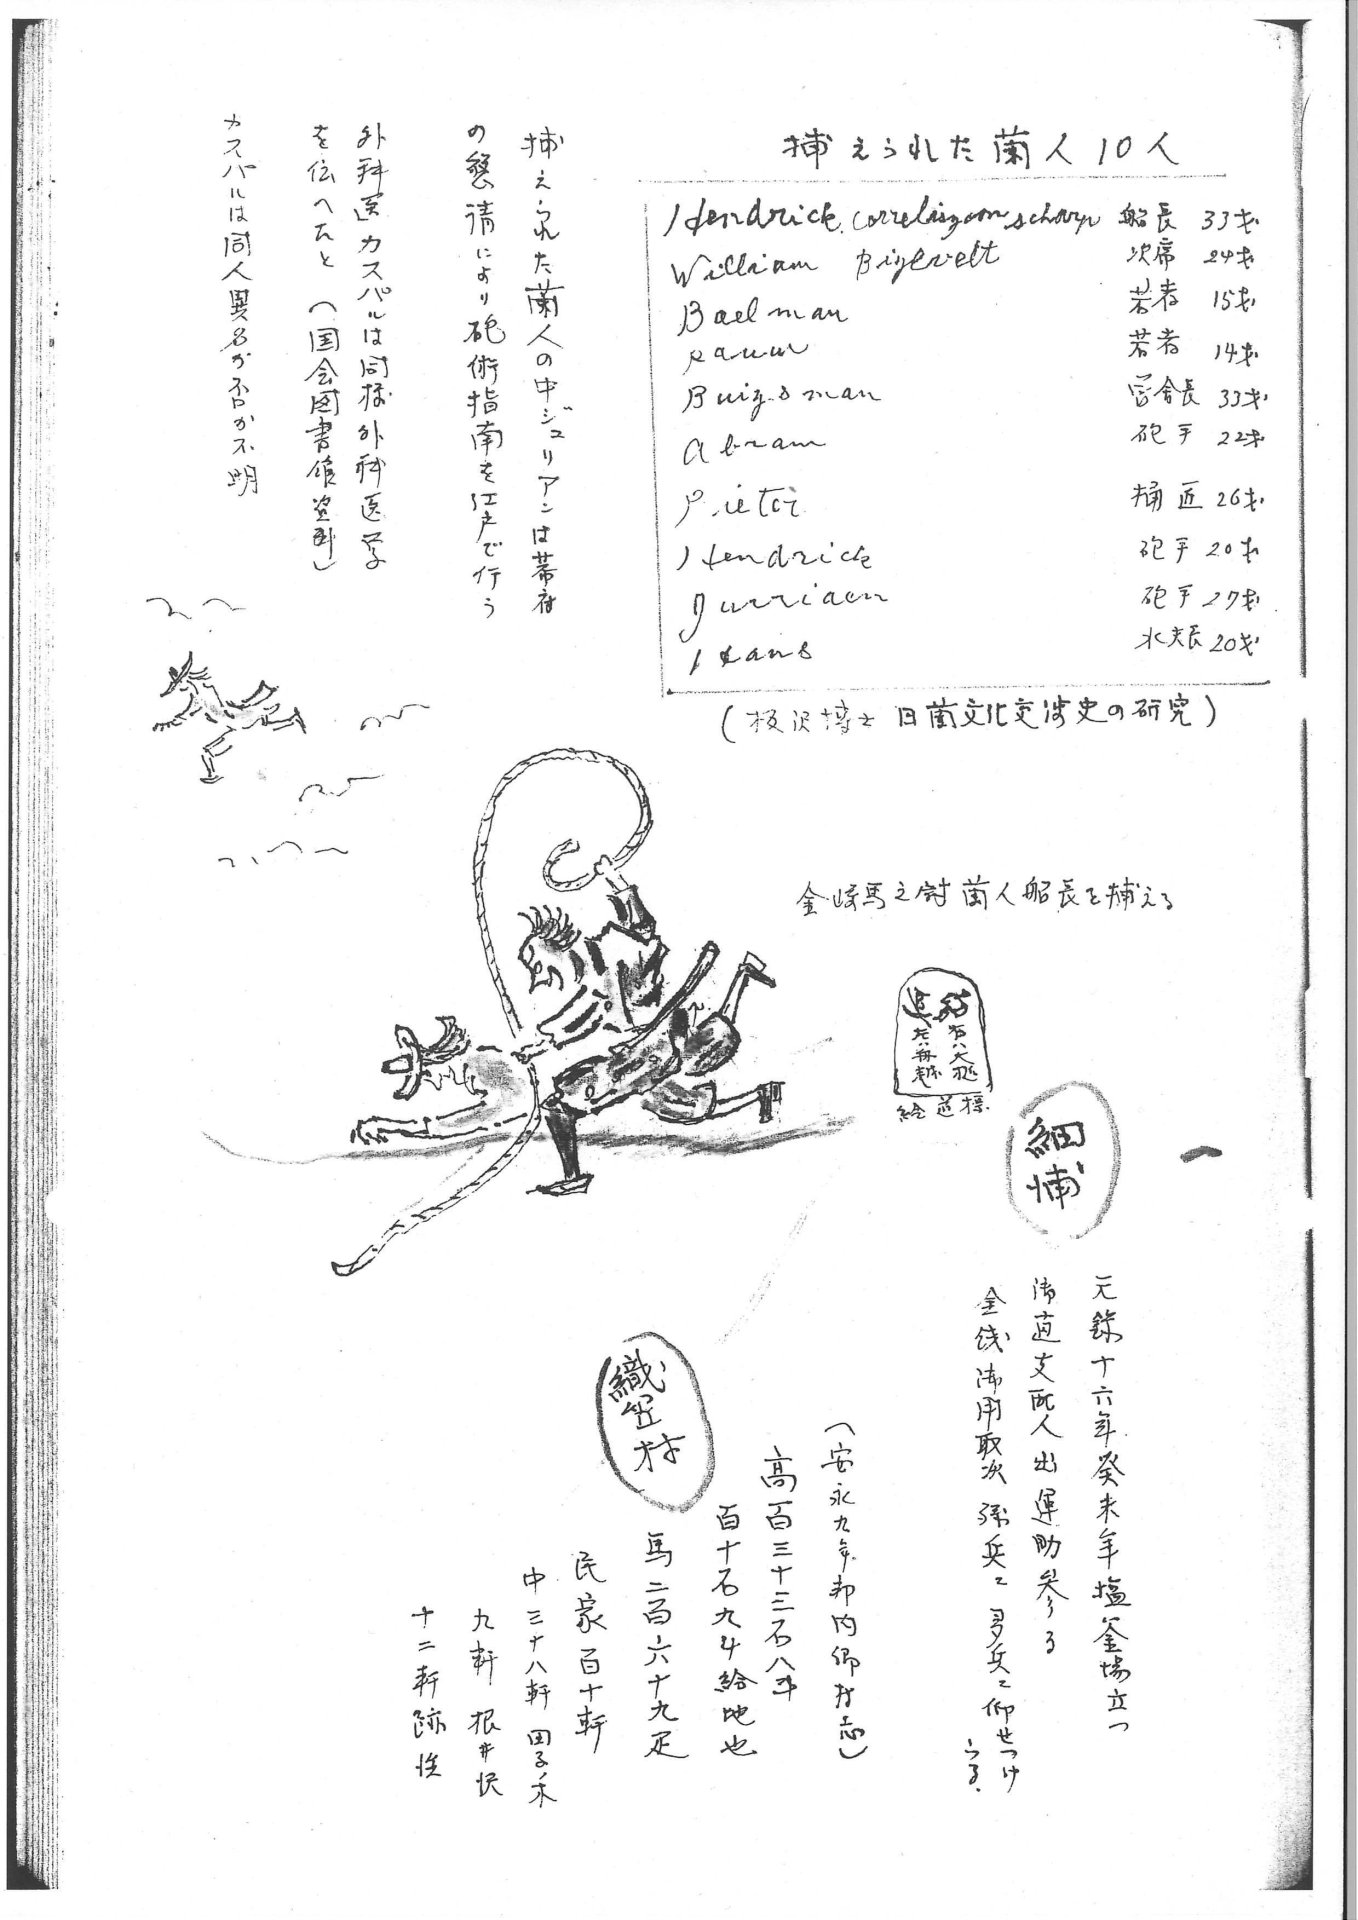 捕えられた蘭人10人
Hendrick Correliszoon schaep 船長 33才
William Bijlvelt 次席 24才
Baelman 若者 15才
若者 14才
Buigsman 33才
Abram 砲手 22才
Pieter 桶匠 26才
Hendrick 砲手 20才
Jurriaen 砲手 27才
Hans 水夫長 20才
(板沢博士 日蘭文化交渉史の研究)
捕えられた蘭人の中ジュリアンは幕府
の懇請により砲術指南を江戸で行う
外科医カスパルは同様外科医学
を伝へたと(国会図書館資料)
カスパルは同人異名か否か不明
蘭人船長を捕える
右ハ大槌
絵道標
細浦
一
元録十六年癸未年塩釜場立つ
御道支配人出運助参る
金銭御用取次孫兵エ多兵エ仰せつけ
らる.
織笠村
(安永九年邦内郷村志)
高百三十三石八斗
百十石九斗給地也
馬二百六十九疋
民家百十軒
中三十八軒田子ノ木
九軒 根井沢
十二軒跡浜